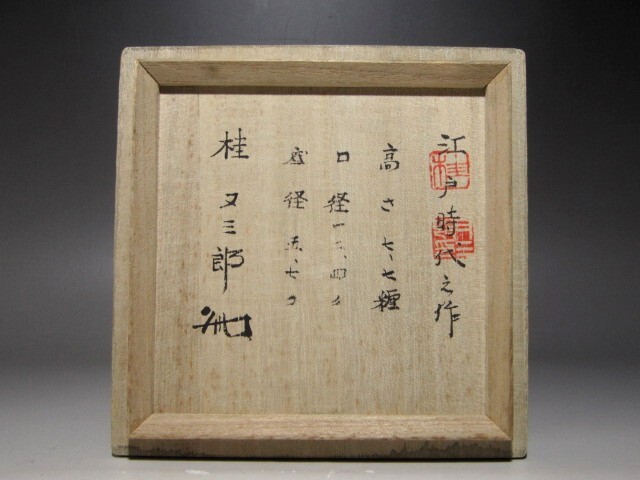 江戸時代之作
高さ七、七糎
口径一三、四〃
底径五、七〃
桂又三郎